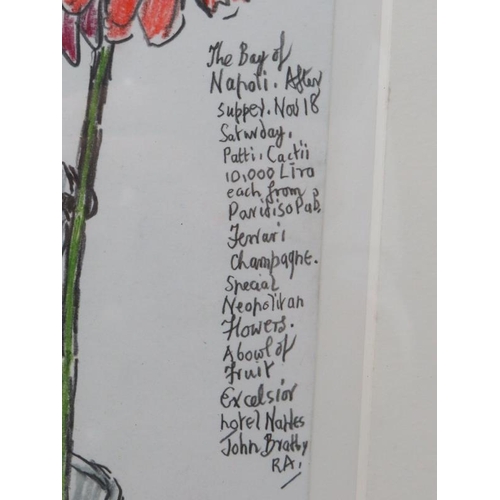 The Bay of
Napoli. After
supper. Nov 18
Saturday.
Patti. Cactii
10,000 Lira
each from
Ferrari
Champagne.
Special
Neopolitan
Flowers.
A bowl of
Fruit
Excelsior
hotel Naples
John Bratby
RA.